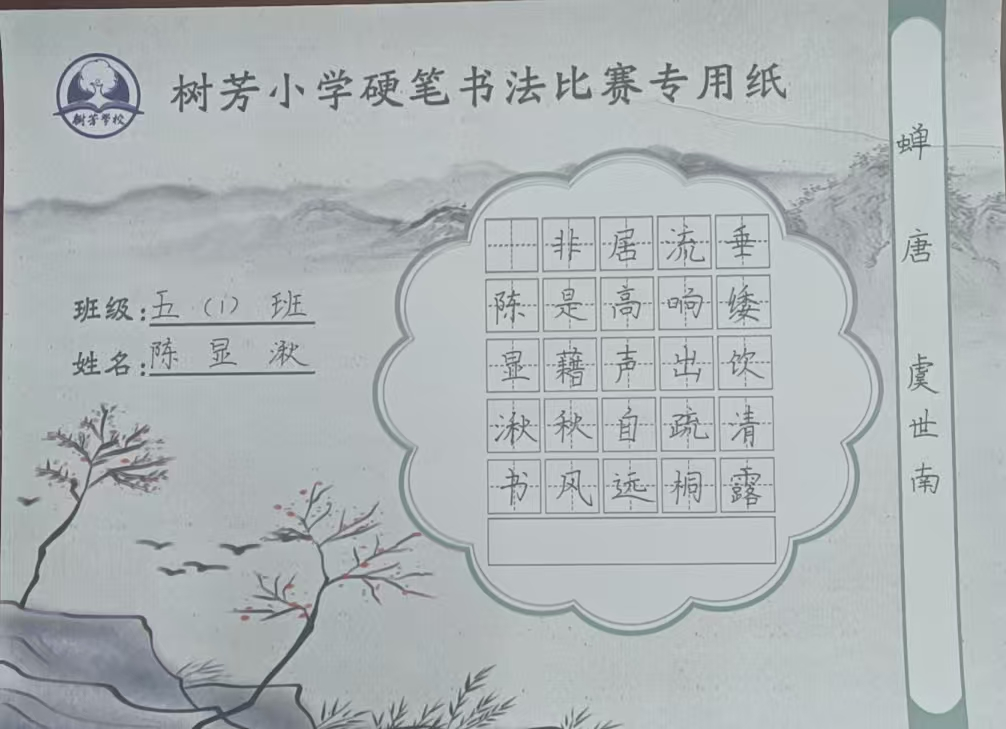 树芳学校
树芳小学硬笔书法比赛专用纸
蝉 唐 虞世南
垂緌饮清露
流响出疏桐
居高声自远
非是藉秋风
陈显湫书
班级：五（1）班
姓名：陈显湫